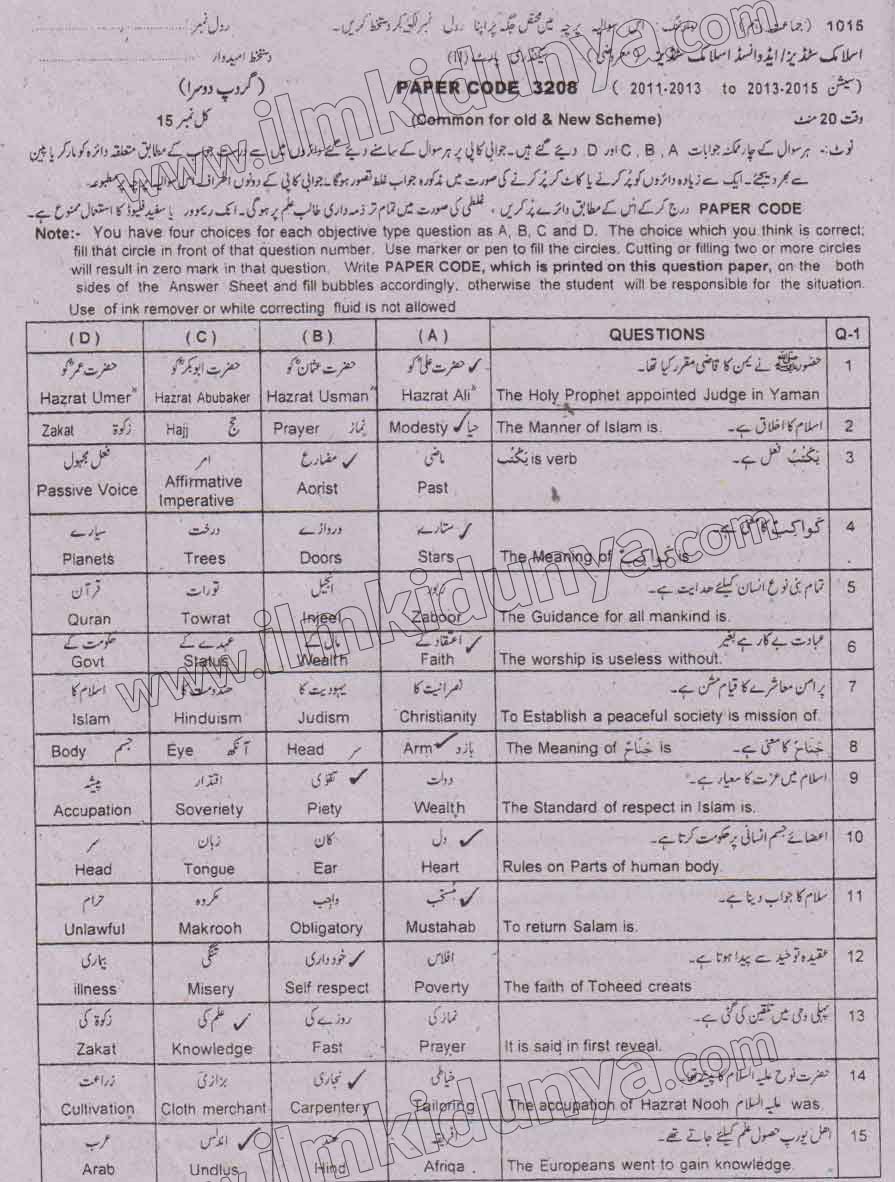 1015 (جماعت نہم) وارننگ:۔ اس سوالیہ پرچہ میں مختص جگہ پر اپنا رول نمبر لکھ کر دستخط کریں۔ رول نمبر
اسلامک سٹڈیز/ایڈوانسڈ اسلامک سٹڈیز (معروضی) سیکنڈری پارٹ (I) دستخط امیدوار
(سیشن 2011-2013 to 2013-2015) PAPER CODE 3208 (گروپ دوسرا)
وقت 20 منٹ (Common for old & New Scheme) کل نمبر 15
نوٹ:- ہر سوال کے چار ممکنہ جوابات A , B , C اور D دیئے گئے ہیں۔ جوابی کاپی پر ہر سوال کے سامنے دیئے گئے دائروں میں سے درست جواب کے مطابق متعلقہ دائرہ کو مارکر یا پین
سے بھر دیجئے۔ ایک سے زیادہ دائروں کو پُر کرنے یا کاٹ کر پُر کرنے کی صورت میں مذکورہ جواب غلط تصور ہوگا۔ جوابی کاپی کے دونوں اطراف اس سوالیہ پرچہ پر مطبوعہ
PAPER CODE درج کر کے اس کے مطابق دائرے پُر کریں، غلطی کی صورت میں تمام تر ذمہ داری طالب علم پر ہوگی۔ انک ریموور یا سفید فلیوڈ کا استعمال ممنوع ہے۔
Note:- You have four choices for each objective type question as A, B, C and D. The choice which you think is correct;
fill that circle in front of that question number. Use marker or pen to fill the circles. Cutting or filling two or more circles
will result in zero mark in that question. Write PAPER CODE, which is printed on this question paper, on the both
sides of the Answer Sheet and fill bubbles accordingly, otherwise the student will be responsible for the situation.
Use of ink remover or white correcting fluid is not allowed
( D ) ( C ) ( B ) ( A ) QUESTIONS Q-1
حضرت عمرؓ کو حضرت ابوبکرؓ کو حضرت عثمانؓ کو حضرت علیؓ کو حضورﷺ نے یمن کا قاضی مقرر کیا تھا۔ 1
Hazrat Umer Hazrat Abubaker Hazrat Usman Hazrat Ali The Holy Prophet appointed Judge in Yaman
Zakat زکوۃ Hajj حج Prayer نماز Modesty حیا The Manner of Islam is. اسلام کا اخلاق ہے۔ 2
فعل مجہول امر مضارع ماضی يَكْتُبُ is verb يَكْتُبُ فعل ہے۔ 3
Passive Voice Affirmative Imperative Aorist Past
سیارے درخت دروازے ستارے كَوَاكِبُ کا معنی ہے۔ 4
Planets Trees Doors Stars The Meaning of كَوَاكِبُ is
قرآن تورات انجیل زبور تمام بنی نوع انسان کیلئے ھدایت ہے۔ 5
Quran Towrat Injeel Zaboor The Guidance for all mankind is.
حکومت کے عہدے کے مال کے اعتقاد کے عبادت بے کار ہے بغیر 6
Govt Status Wealth Faith The worship is useless without.
اسلام کا ھندومت کا یہودیت کا نصرانیت کا پرامن معاشرے کا قیام مشن ہے۔ 7
Islam Hinduism Judism Christianity To Establish a peaceful society is mission of.
Body جسم Eye آنکھ Head سر Arm بازو The Meaning of جَنَاحٌ is جَنَاحٌ کا معنی ہے۔ 8
پیشہ اقتدار تقوٰی دولت اسلام میں عزت کا معیار ہے۔ 9
Accupation Soveriety Piety Wealth The Standard of respect in Islam is.
سر زبان کان دل اعضائے جسم انسانی پر حکومت کرتا ہے۔ 10
Head Tongue Ear Heart Rules on Parts of human body.
حرام مکروہ واجب مُستحب سلام کا جواب دینا ہے۔ 11
Unlawful Makrooh Obligatory Mustahab To return Salam is.
بیماری تنگی خودداری افلاس عقیدہ توحید سے پیدا ہوتا ہے۔ 12
illness Misery Self respect Poverty The faith of Toheed creats
زکوۃ کی علم کی روزے کی نماز کی پہلی وحی میں تلقین کی گئی ہے۔ 13
Zakat Knowledge Fast Prayer It is said in first reveal.
زراعت بزازی نجاری خیاطی حضرت نوح علیہ السلام کا پیشہ تھا۔ 14
Cultivation Cloth merchant Carpentery Tailoring The accupation of Hazrat Nooh علیہ السلام was.
عرب اندلس ھند افریقہ اھل یورپ حصول علم کیلئے جاتے تھے۔ 15
Arab Undlus Hind Afriqa The Europeans went to gain knowledge.
www.ilmkidunya.com
www.ilmkidunya.com
www.ilmkidunya.com